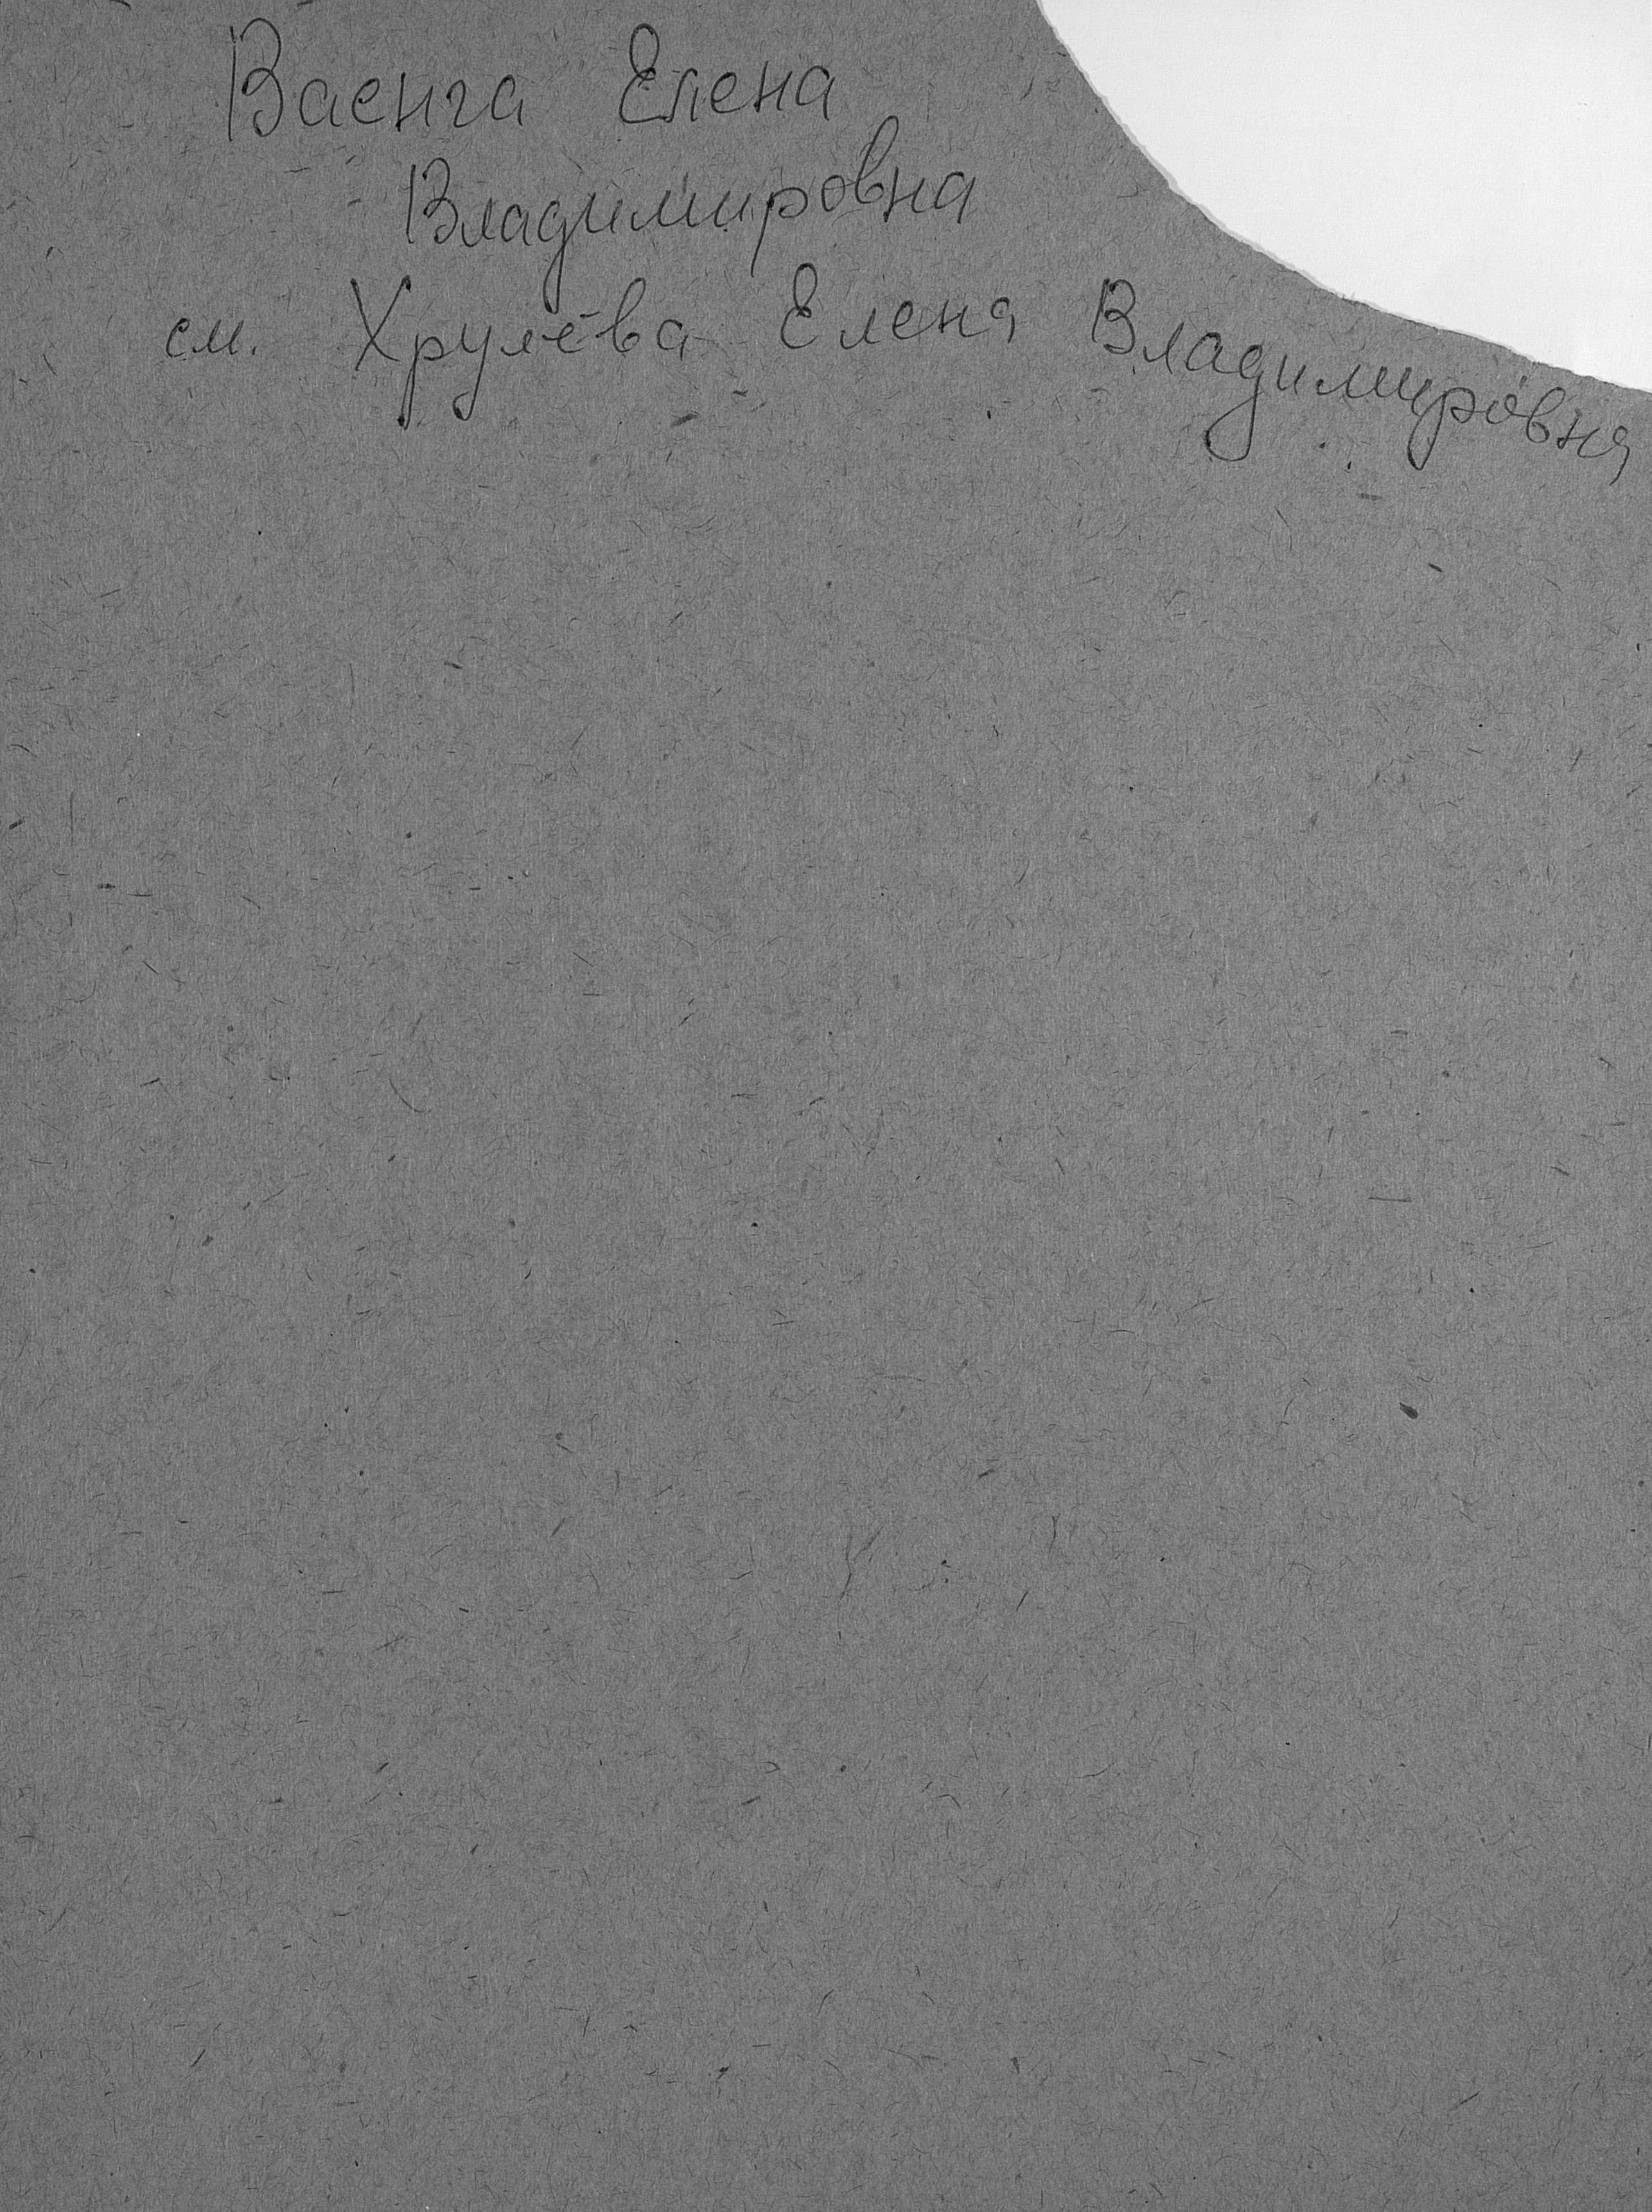 Ваенга Елена
Владимировна
см. Хрулёва Елена Владимировна